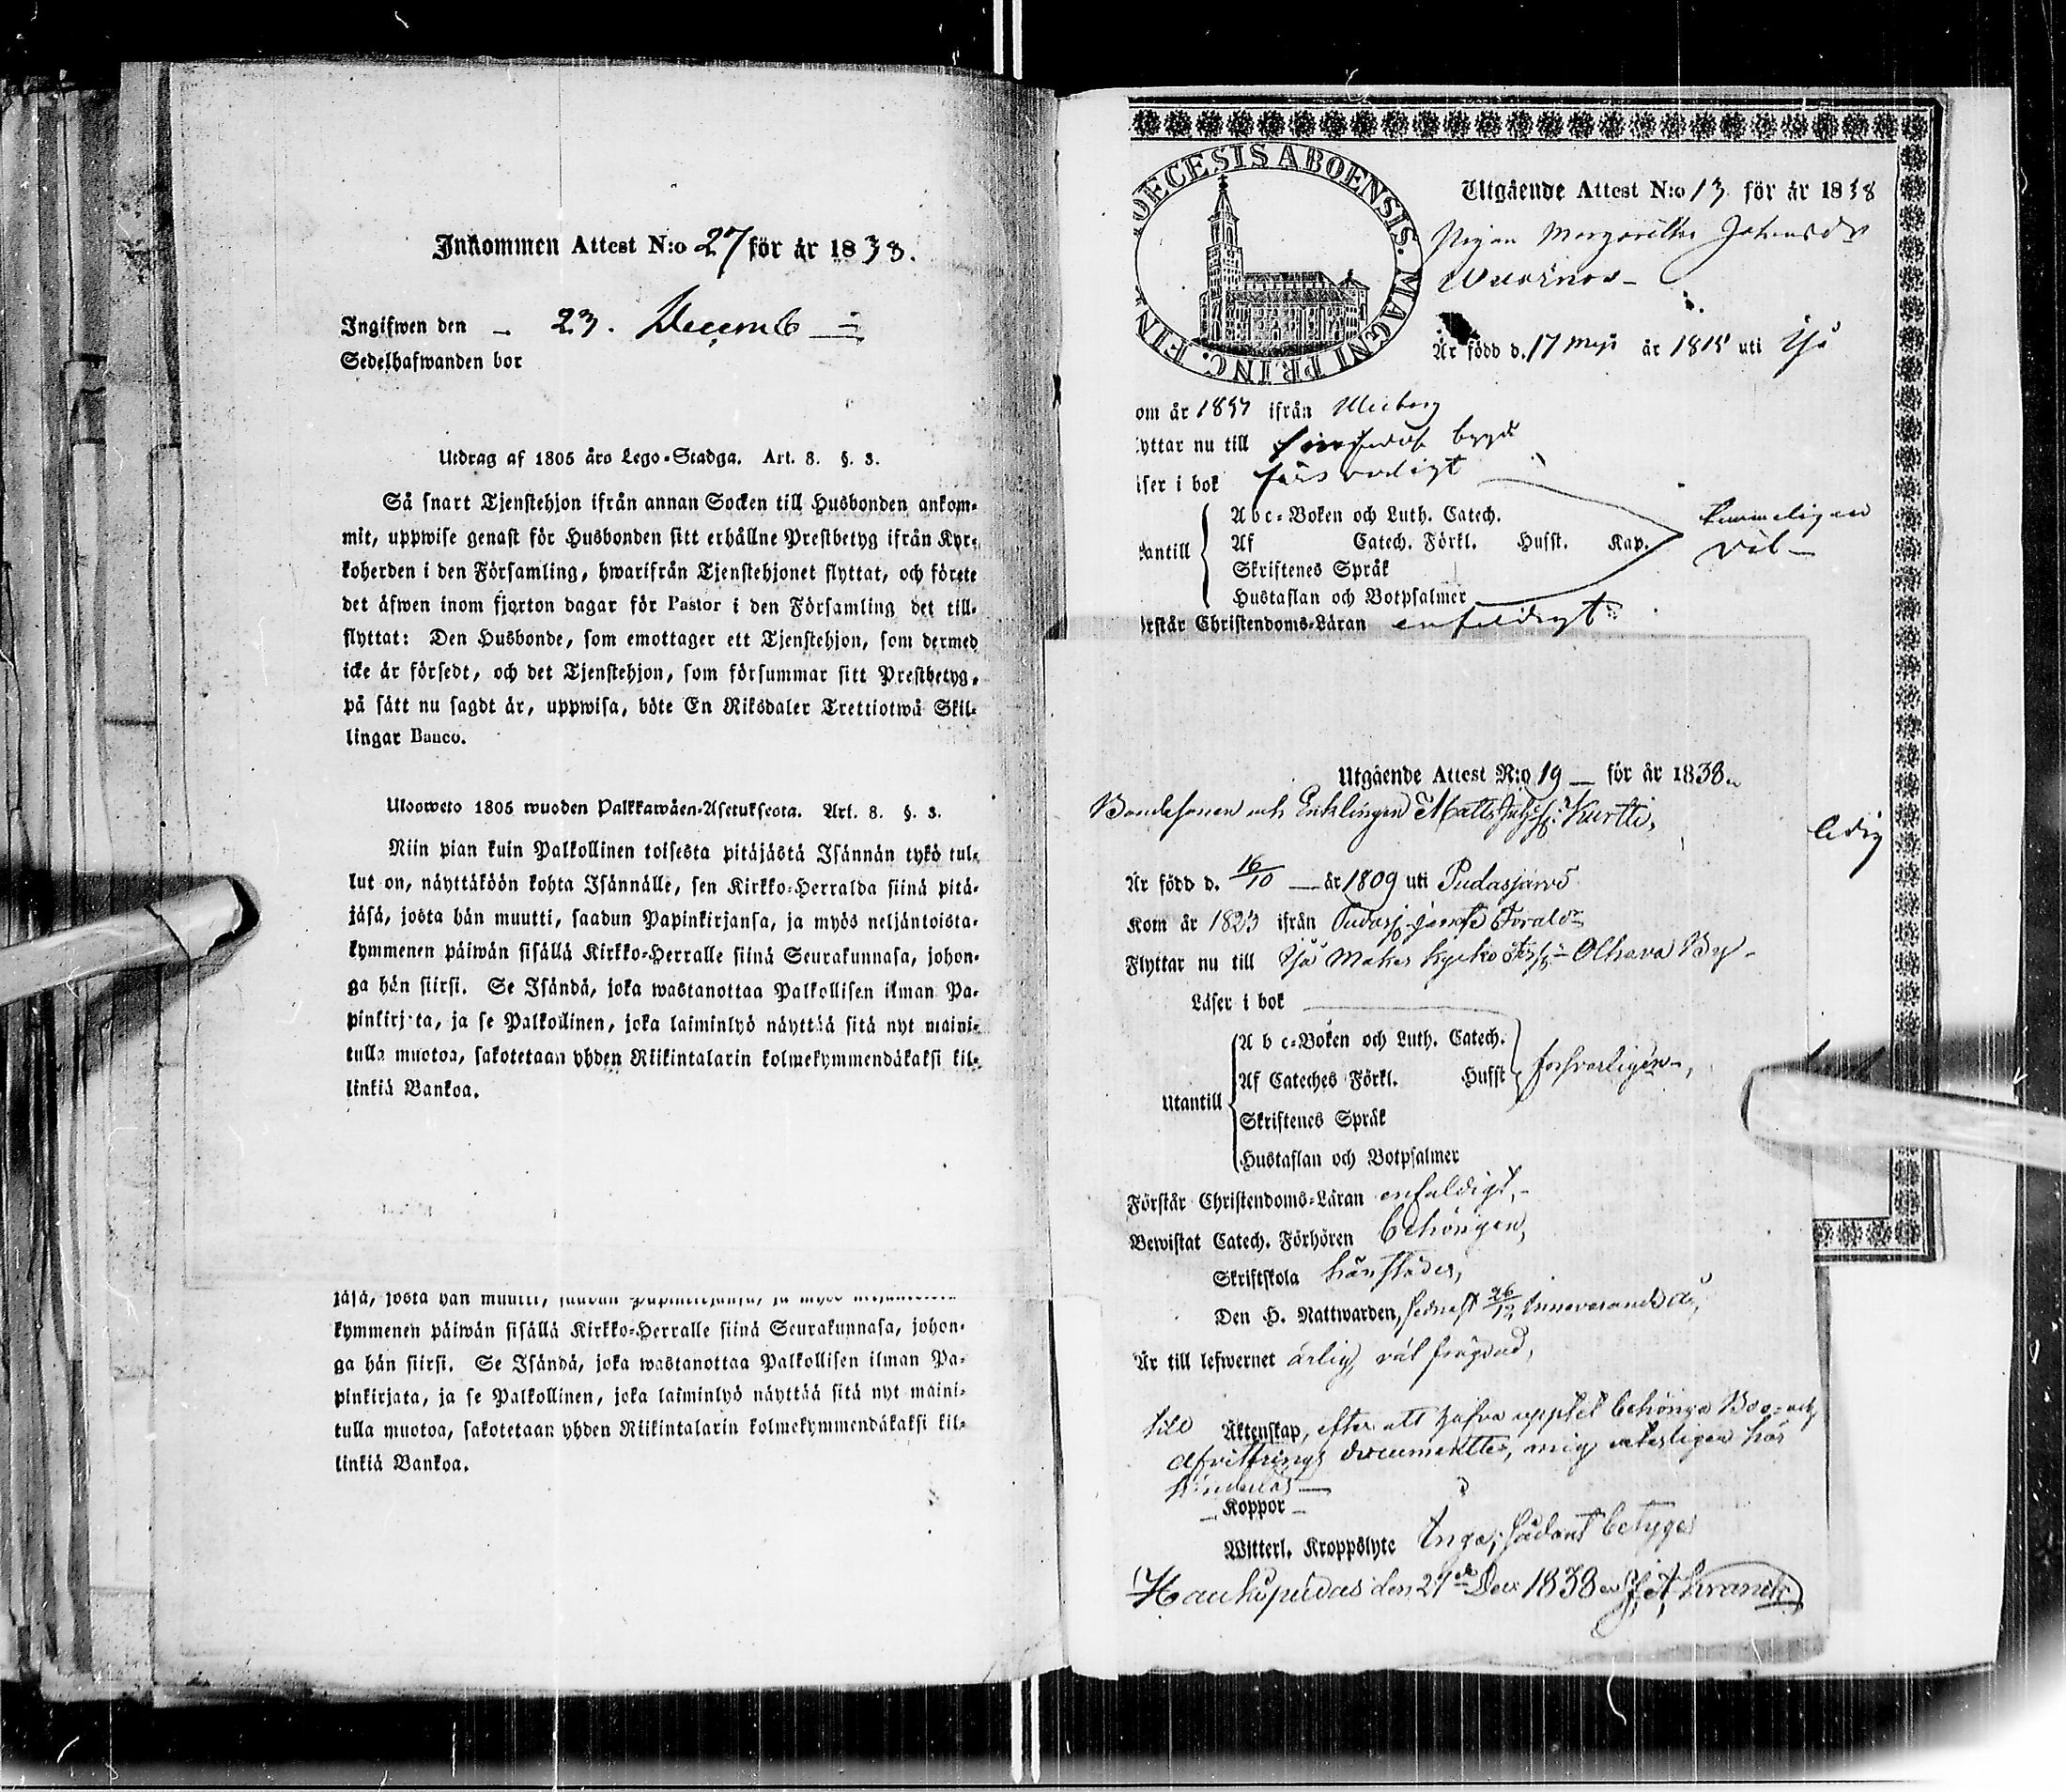 Inkommen Attest N:o 27 för år 1838.
Ingifwen den – 23. Decemb –
Sedelhafwanden bor
Utdrag af 1805 års Lego-Stadga. Art. 8. §. 3.
Så snart Tjenstehjon ifrån annan Socken till Husbonden ankom-
mit, uppwise genast för Husbonden sitt erhållne Prestbetyg ifrån Kyr-
koherden i den Församling, hwarifrån Tjenstehjonet flyttat, och förete
det äfwen inom fjorton dagar för Pastor i den Församling det till-
flyttat: Den Husbonde, som emottager ett Tjenstehjon, som dermed
icke är försedt, och det Tjenstehjon, som försummar sitt Prestbetyg,
på sätt nu sagdt är, uppwisa, böte En Riksdaler Trettiotwå Skil-
lingar Banco.
Ulosweto 1805 wuoden Palkkawäen-Asetuksesta. Art. 8. §. 3.
Niin pian kuin Palkollinen toisesta pitäjästä Isännän tykö tul-
lut on, näyttäköön kohta Isännälle, sen Kirkko-Herralda siinä pitä-
jäsä, josta hän muutti, saadun Papinkirjansa, ja myös neljäntoista-
kymmenen päiwän sisällä Kirkko-Herralle siinä Seurakunnasa, johon-
ga hän siirsi. Se Isändä, joka wastanottaa Palkollisen ilman Pa-
pinkirjata, ja se Palkollinen, joka laiminlyö näyttää sitä nyt maini-
tulla muotoa, sakotetaan yhden Riikintalarin kolmekymmendäkaksi kil-
linkiä Bankoa.
jäsä, josta hän muutti, saadun Papinkirjansa, ja myös neljäntoista
kymmenen päiwän sisällä Kirkko-Herralle siinä Seurakunnasa, johon-
ga hän siirsi. Se Isändä, joka wastanottaa Palkollisen ilman Pa-
pinkirjata, ja se Palkollinen, joka laiminlyö näyttää sitä nyt maini-
tulla muotoa, sakotetaan yhden Riikintalarin kolmekymmendäkaksi kil-
linkiä Bankoa.
OECESIS ABOENSIS. MAGNI PRINC. FIN
Utgående Attest N:o 13 för år 1838
Pigan Margaretha Johansdr
Är född d. 17 Maji år 1815 uti Ijo
om år 1837 ifrån Uleåborg
yttar nu till
äser i bok försvarligt
Abc-Boken och Luth. Catech.
Af Catech. Förkl. Husst. Kap.
antill
Skriftenes Språk
Hustaflan och Botpsalmer
temmeligen
väl –
rstår Christendoms-Läran enfaldigt
Utgående Attest N:o 19 – för år 1838.
Bondesonen och Enklingen Matts Kurtti,
ledig
Är född d. 16/10 – år 1809 uti Pudasjärvi
Kom år 1823 ifrån Pudasj.
Flyttar nu till Ijo Olhava By –
Läser i bok
A b c-Boken och Luth. Catech.
Af Cateches Förkl. Husst
försvarligen,
Utantill
Skriftenes Språk
Hustaflan och Botpsalmer
Förstår Christendoms-Läran enfaldigt,
Bewistat Catech. Förhören behörigen,
Skriftskola
Den H. Nattwarden, sednast innevarande år,
Är till lefwernet ärlig, väl frägdad,
till Äktenskap, efter att hafva behöriga Boo- och
Afvittrings documenter, mig veterligen här
hinderlös –
– Koppor –
Witterl. Kroppslyte Inga; sådant betygas
Haukipudas den 21 Dec 1838 J. A. Franck